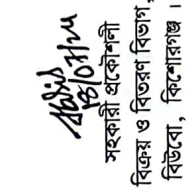 ১৪/০৭/২৫
সহকারী প্রকৌশলী
বিক্রয় ও বিতরণ বিভাগ,
বিউবো, কিশোরগঞ্জ।